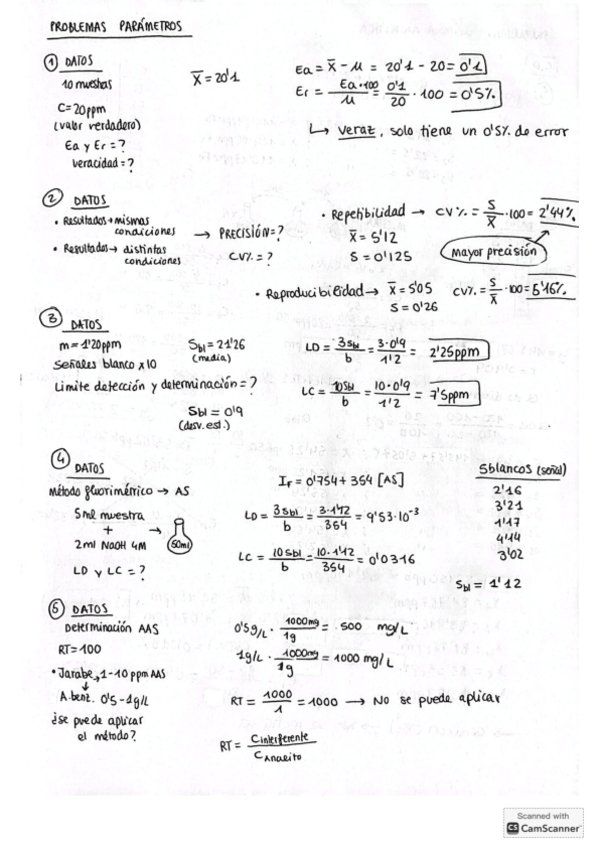 PROBLEMAS PARÁMETROS
① DATOS
10 muestras
C=20ppm
(valor verdadero)
Ea y Er = ?
veracidad = ?
X̄ = 20'1
Ea = X̄ - μ = 20'1 - 20 = 0'1
Er = Ea·100/μ = 0'1/20 · 100 = 0'5%
↳ veraz, solo tiene un 0'5% de error
② DATOS
• Resultados → mismas condiciones
• Resultados → distintas condiciones
→ PRECISIÓN = ?
CV% = ?
• Repetibilidad → CV% = S/X̄ · 100 = 2'44%
X̄ = 5'12
S = 0'125
Mayor precisión
• Reproducibilidad → X̄ = 5'05
S = 0'26
CV% = S/X̄ · 100 = 5'16%
③ DATOS
m = 1'20ppm
Señales blanco x10
Limite detección y determinación = ?
Sbl = 21'26
(media)
Sbl = 0'9
(desv.est.)
LD = 3Sbl/b = 3·0'9/1'2 = 2'25ppm
LC = 10Sbl/b = 10·0'9/1'2 = 7'5ppm
④ DATOS
Método fluorimétrico → AS
5ml muestra
+
2ml NaOH 4M
→ 50ml
LD y LC = ?
Ir = 0'754 + 354 [AS]
LD = 3Sbl/b = 3·1'12/354 = 9'53·10⁻³
LC = 10Sbl/b = 10·1'12/354 = 0'0316
5blancos (señal)
2'16
3'21
1'17
4'14
3'02
Sbl = 1'12
⑤ DATOS
Determinación AAS
RT = 100
• Jarabe → 1-10 ppm AAS
↓
A.benz. 0'5 - 1g/L
¿se puede aplicar
el método?
0'5g/L · 1000mg/1g = 500 mg/L
1g/L · 1000mg/1g = 1000 mg/L
RT = 1000/1 = 1000 → No se puede aplicar
RT = Cinterferente/CAnalito
Scanned with
CS CamScanner